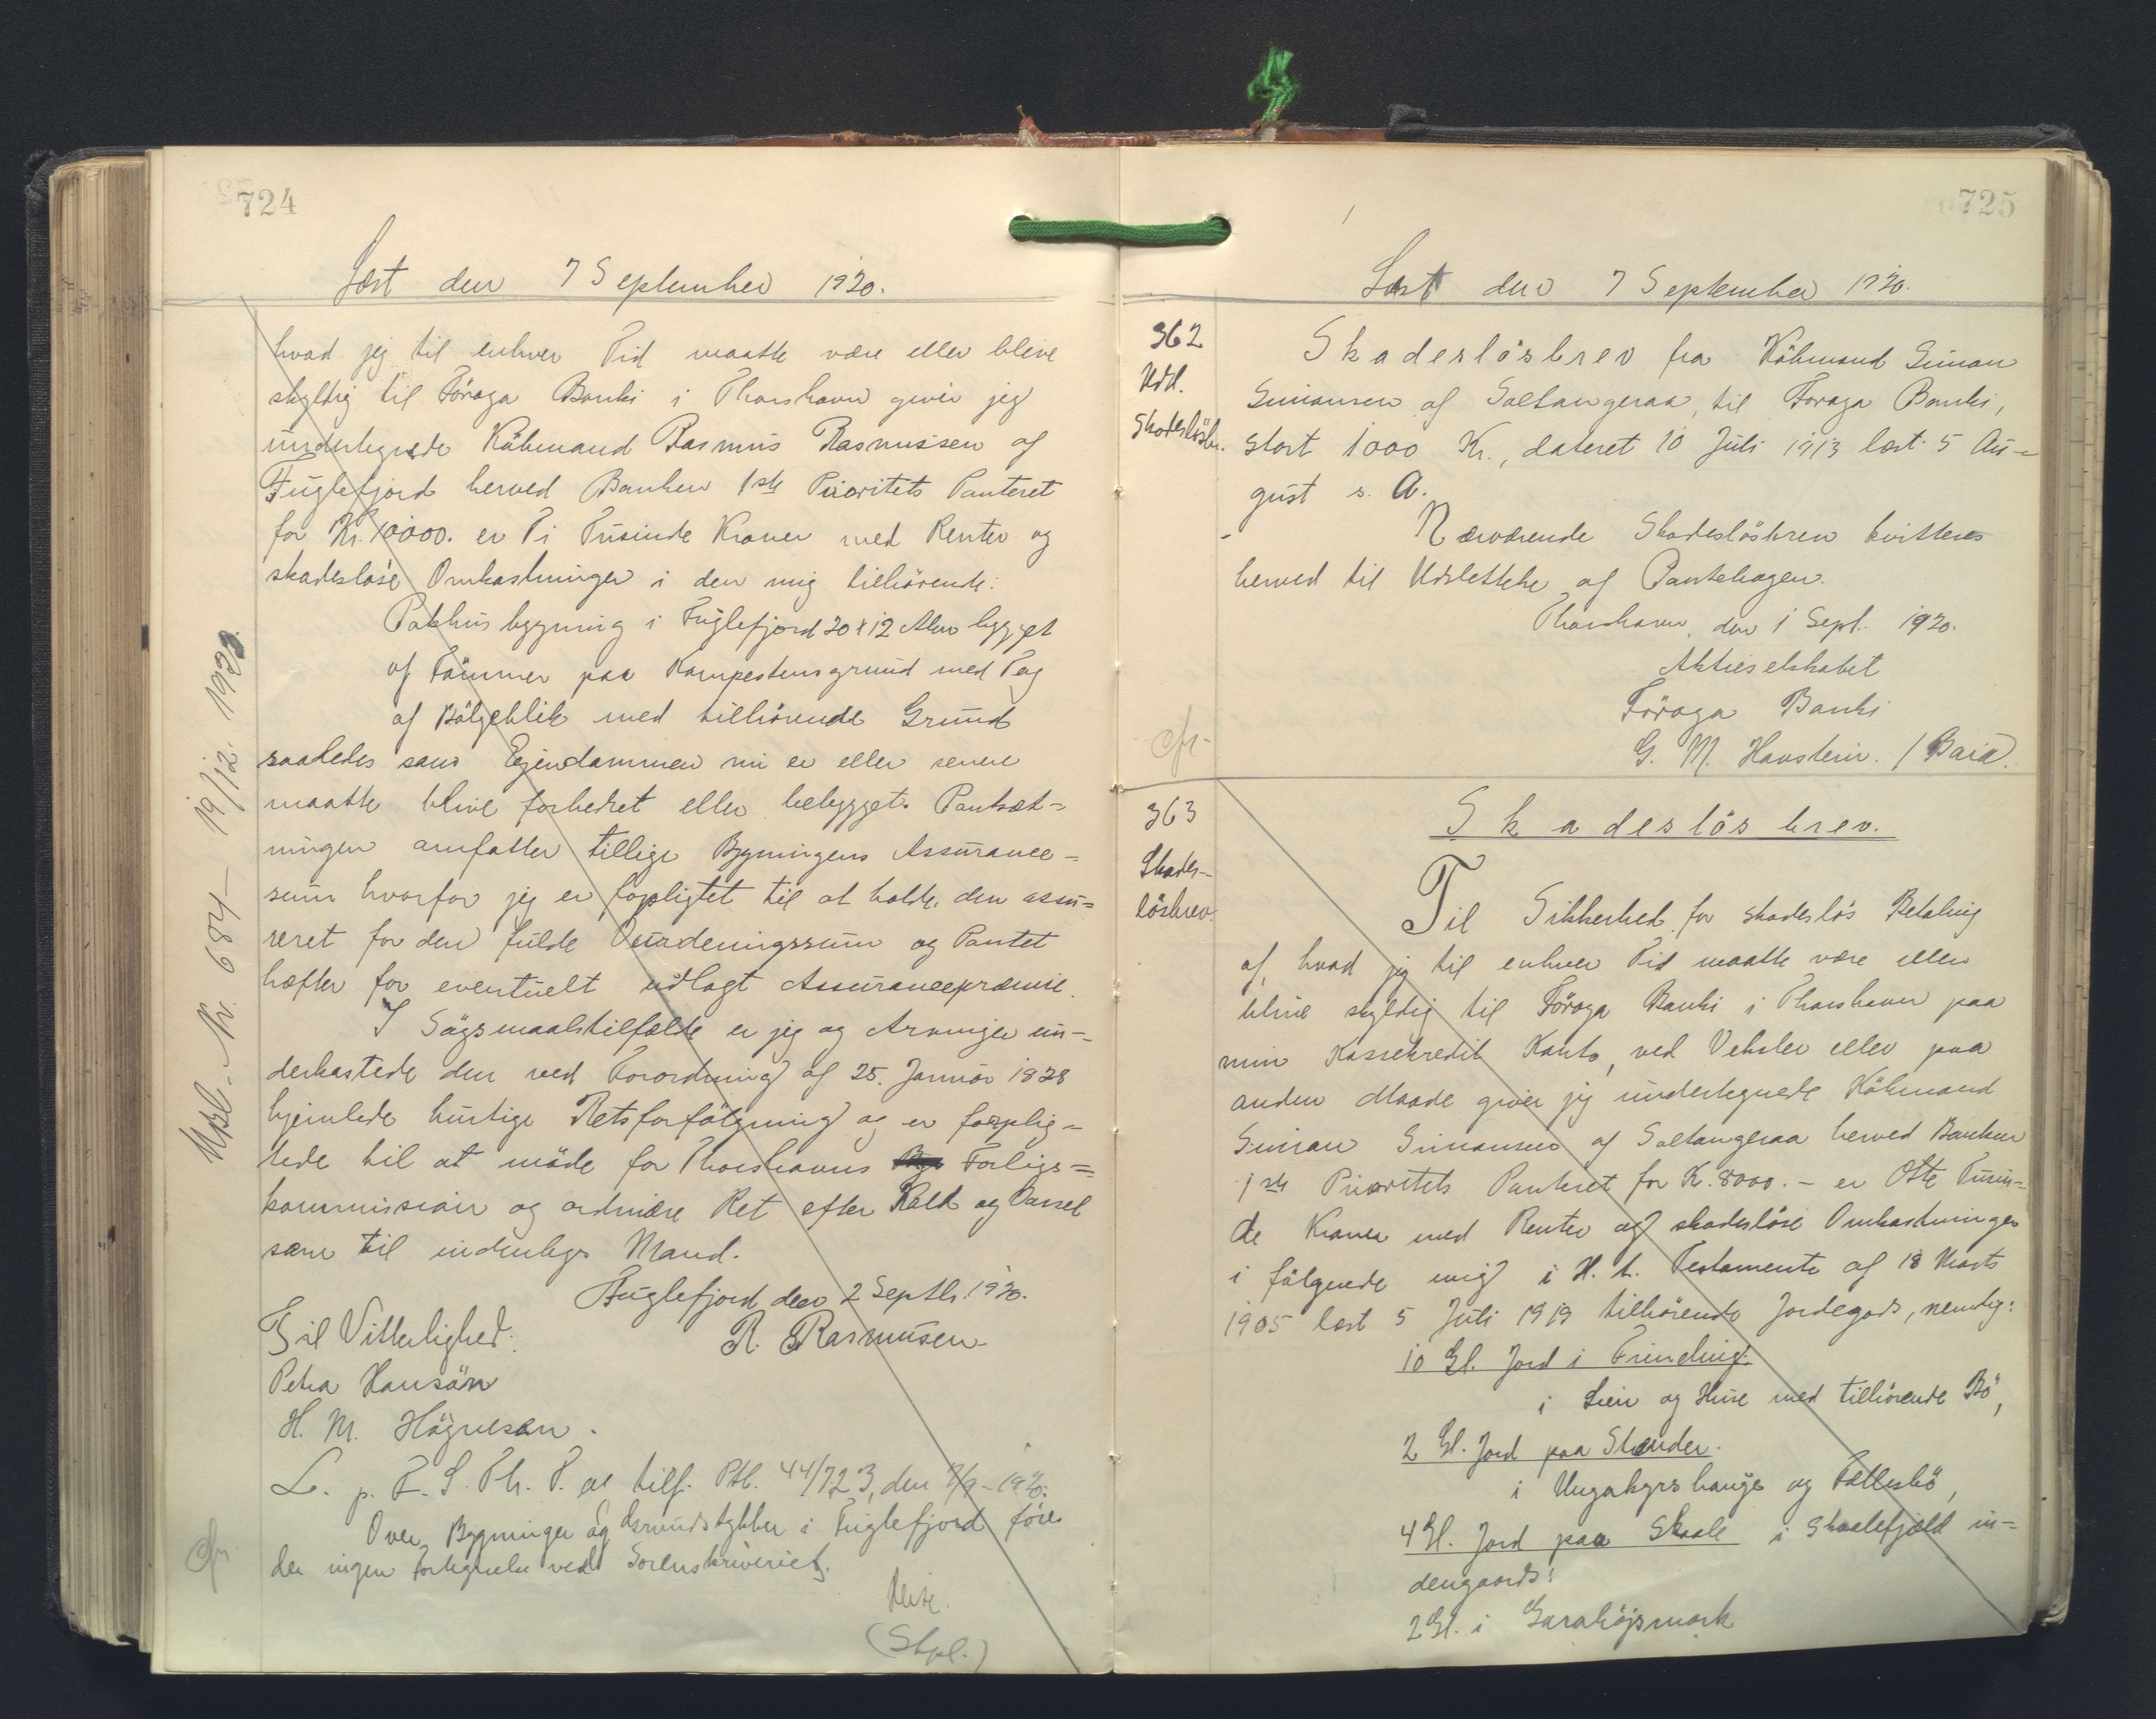 724
Læst den 7 September 1920.
hvad jeg til enhver Tid maatte være eller blive
skyldig til Föroya Banki i Thorshavn giver jeg
undertegnede Köbmand Rasmus Rasmussen af
Fuglefjord herved Banken 1ste Prioritets Panteret
for Kr. 10000. er Ti Tusinde Kroner med Renter og
skadesløse Omkostninger i den mig tilhörende:
Pakhusbygning i Fuglefjord 20 x 12 Alen bygget
af Tömmer paa Kampestensgrund med Tag
af Bölgeblik med tilhörende Grund
saaledes som Ejendommen nu er eller senere
maatte blive forbedret eller bebygget. Pantsæt=
ningen omfatter tillige Bygningens Assurance=
sum hvorfor jeg er forpligtet til at holde den assu=
reret for den fulde Vurderingssum og Pantet
hæfter for eventuelt udlagt Assurancepræmie.
I Sögsmaalstilfælde er jeg og Arvinger un=
derkastede den ved Forordning af 25. Januar 1828
hjemlede hurtige Retsforfölgning og er forplig=
tede til at möde for Thorshavns Forligs=
kommission og ordinære Ret efter Kald og Varsel
som til indenbygs Mand.
Fuglefjord den 2 Septb. 1920.
Til Vitterlighed: R. Rasmusen
Petra Hansön
H. M. Högnesen.
L. p. F. S. Th. P. at tilf. Ptb. 44/723, den 7/9-1920.
Over Bygninger og Grundstykker i Fuglefjord före
der ingen Fortegnelse ved Sorenskriveriet.
(Stpl.)
Cfr.
Udsl. Nr. 684 - 19/12. 1923.
725
Læst den 7 September 1920.
362
Udsl.
Skadeslösbr.
Skadeslösbrev fra Köbmand Simun
Simonsen af Saltangeraa, til Föroya Banki,
stort 1000 Kr., dateret 10 Juli 1913 læst 5 Au=
gust s. A.
Nærværende Skadeslösbrev kvitteres
herved til Udslettelse af Pantebogen.
Thorshavn, den 1 Sept. 1920.
Aktieselskabet
Föroya Banki
G. M. Havstein. /
Cfr.
363
Skades-
lösbrev.
Skadeslösbrev.
Til Sikkerhed for skadeslös Betaling
af, hvad jeg til enhver Tid maatte være eller
blive skyldig til Föroya Banki i Thorshavn paa
min Kassekredit Konto, ved Veksler eller paa
anden Maade giver jeg undertegnede Köbmand
Simun Simonsen af Saltangeraa herved Banken
1ste Prioritets Panteret for Kr. 8000. - er Otte Tusin=
de Kroner med Renter og skadeslöse Omkostninger
i fölgende mig i H. t. Testamente af 18 Marts
1905 læst 5 Juli 1919 tilhörende Jordegods, nemlig:
10 Gl. Jord i Funding.
i Lien og Huse med tilhörende Bö,
2 Gl. Jord paa Stænder.
i Ungakyrshauge og Fællesbö,
4 Gl. Jord paa Skaale i Skaalefjæld in=
dengaards:
2 Gl. i Garahöjsmark